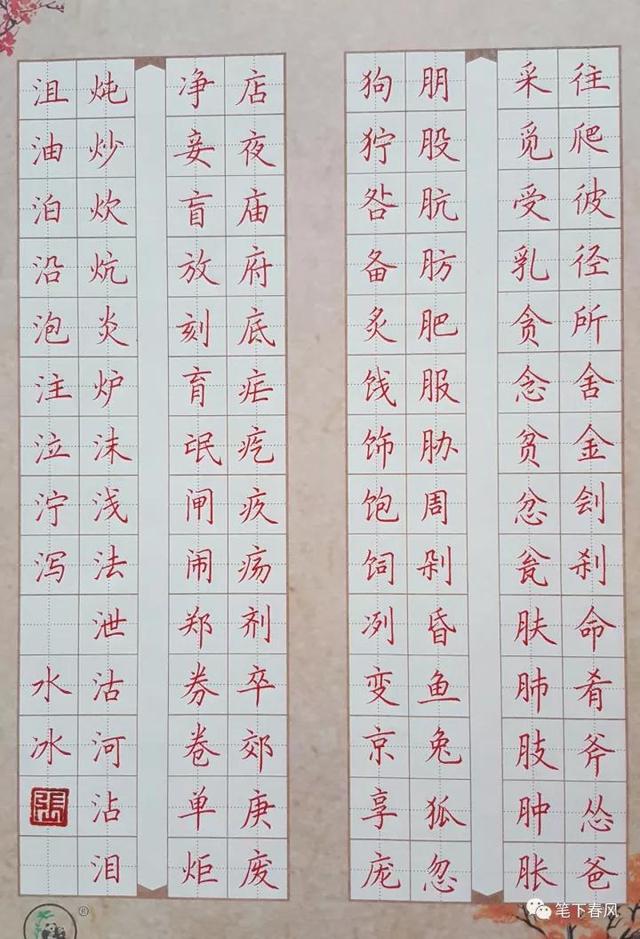 往爬彼径所舍金刽刹命肴斧怂爸
采觅受乳贪念贫忿瓮肤肺肢肿胀
朋股肮肪肥服胁周剁昏鱼兔狐忽
狗狞咎备炙饯饰饱饲冽变京享庞
店夜庙府底疟疙疚疡剂卒郊庚废
净妾盲放刻育氓闸闹郑券卷单炬
炖炒炊炕炎炉沫浅法泄沽河沾泪
沮油泊沿泡注泣泞泻
水冰
張
®
笔下春风